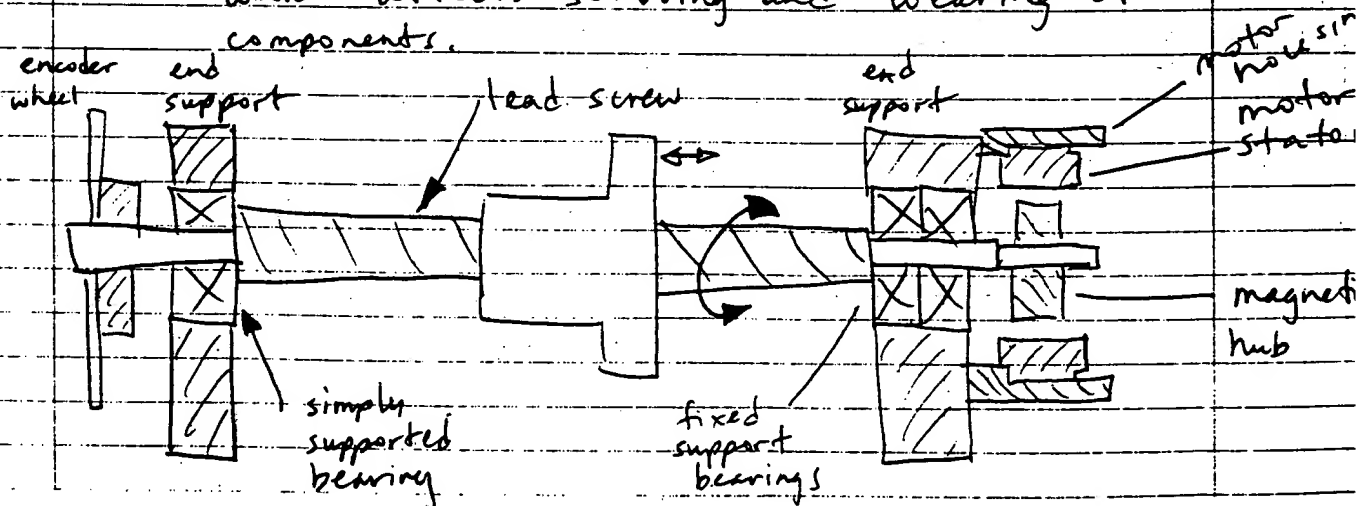 components.
encoder
wheel
end
support
lead screw
end
support
motor
motor
magneti
hub
simply
supported
bearing
fixed
support
bearings